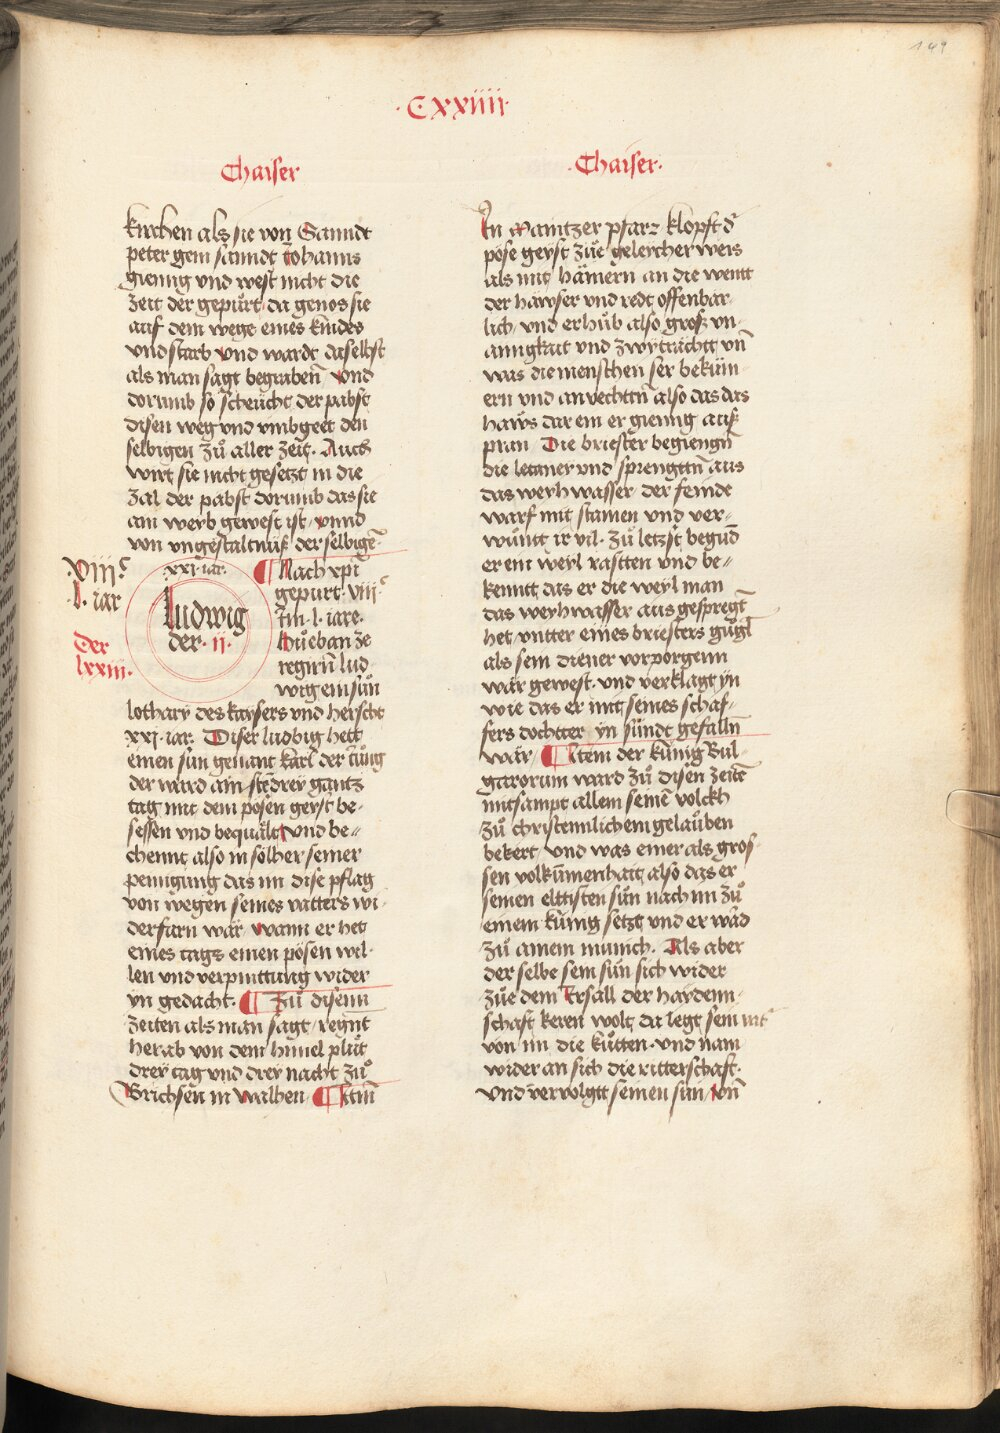 149
·CXXIIII·
Chaiser
kirchen als sie von Sanndt
peter gein sanndt Johanns
gienng vnd west nicht die
zeit der gepůrt· da genos sie
auf dem wege eines kindes
vnd starb vnd wardt daselbst
als man sagt begraben̄ Vnd
dorumb so scheucht der pabst
disen weg vnd vmbgeet den
selbigen zů aller zeit· Auch
wirt sie nicht gesetzt in die
zal der pabst dorumb das sie
ain weyb gewest ist· vnnd
von vngestaltnüß der selbigē
viiiͨ·
·l· iar
der
lxxiii·
·xxi·iar·
Ludwig
der·ii·
¶ Nach xp̄i
gepurt· viiiͨ·
Im·l·iare·
Hueb an ze
regirn̄ lud
wig ein sůn
lothary des kaysers vnd herscht
xxi·iar· Diser ludbig hett
einen sůn genant karl der iung
der ward ain stēdrey gantz
tag mit dem pösen geyst be-
sessen vnd bequält vnd be-
chennt also in solher seiner
peinigung das im dise pflag
von wegen seines vatters wi
derfarn wär wann er het
eines tags einen pösen wil-
len vnd verpinttung wider
yn gedacht· ¶ Zů disenn
zeiten als man sagt regnt
herab von dem himel plůt
drey tag vnd drey nacht zů
Brichsen in walhen ¶ Item
·Chaiser·
In Maintzer pfarr klopft d̄
pöse geyst zue geleycher weis
als mit hämern an die wennt
der häwser vnd redt offenbar-
lich· vnd erhůb also groß vn-
ainigkait vnd zwyträchtt vn̄
was die menschen ser beküm-
ern vnd anvechttn̄ also das das
haws dar ein er gienng auß
pran Die briester begiengn̄
die letaner vnd sprengttn̄ aus
das weyhwasser der feinde
warf mit stainen vnd ver-
wůnt ir vil· Zů letzst begud̄
er ein weyl rastten vnd be-
kenntt das er die weyl man
das weyhwasser aus gesprengt
het vntter eines briesters gůgl
als sein diener vorporgenn
wär gewest· vnd verklagt yn
wie das er mit seines schaf-
fers dochtter yn sündt gefalln̄
wär ¶ Item der künig Bul-
garorum ward zů disen zeitē
mitsampt allem seinē volckh
zů christennlichem gelauben
bekert vnd was einer als gros-
sen volkumenhait also das er
seinen elttisten sůn nach im zů
einem künig setzt vnd er wād
zů ainem münich· Als aber
der selbe sein sůn sich wider
zue dem Irsall der haydenn-
schaft keren wolt da legt sein vater
von im die kůtten· vnd nam
wider an sich die ritterschaft·
vnd vervolgtt seinen sůn vn̄